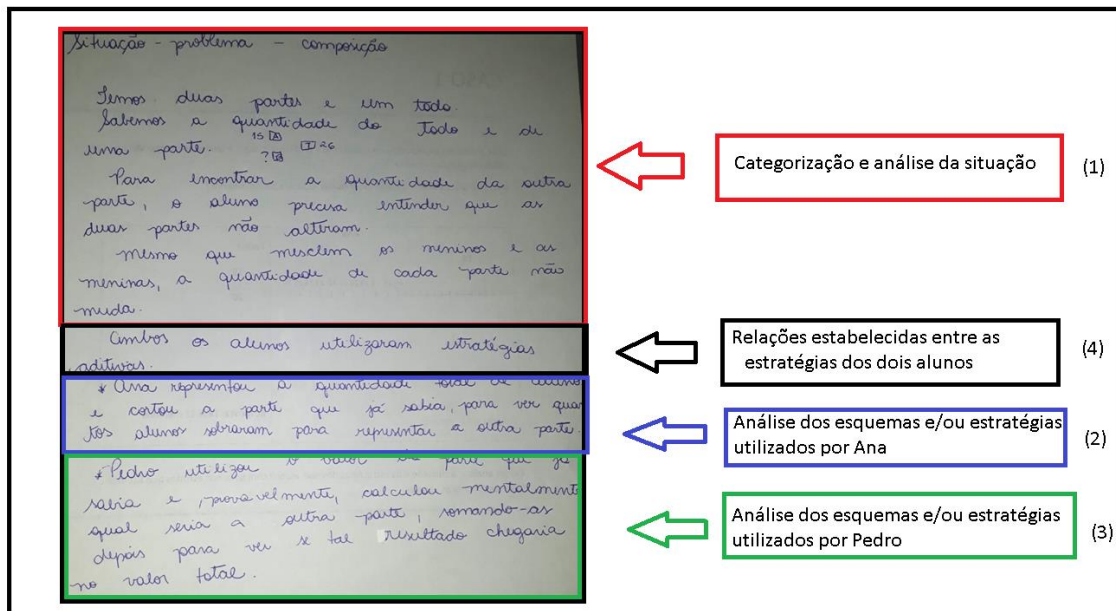 Situação - problema - composição
Temos duas partes e um todo.
Sabemos a quantidade do todo e de
uma parte. 15 A T 26
? B
Para encontrar a quantidade da outra
parte, o aluno precisa entender que as
duas partes não alteram.
Mesmo que mesclem os meninos e as
meninas, a quantidade de cada parte não
muda.
Ambos os alunos utilizaram estratégias
aditivas.
* Ana representou a quantidade total de
e cortou a parte que já sabia, para ver quan
tos alunos sobraram para representar a outra parte.
* Pedro utilizou o valor da parte que já
sabia e, provavelmente, calculou mentalmente
qual seria a outra parte, somando-as
depois para ver se tal resultado chegaria
no valor total.
Categorização e análise da situação
(1)
Relações estabelecidas entre as
estratégias dos dois alunos
(4)
Análise dos esquemas e/ou estratégias
utilizados por Ana
(2)
Análise dos esquemas e/ou estratégias
utilizados por Pedro
(3)